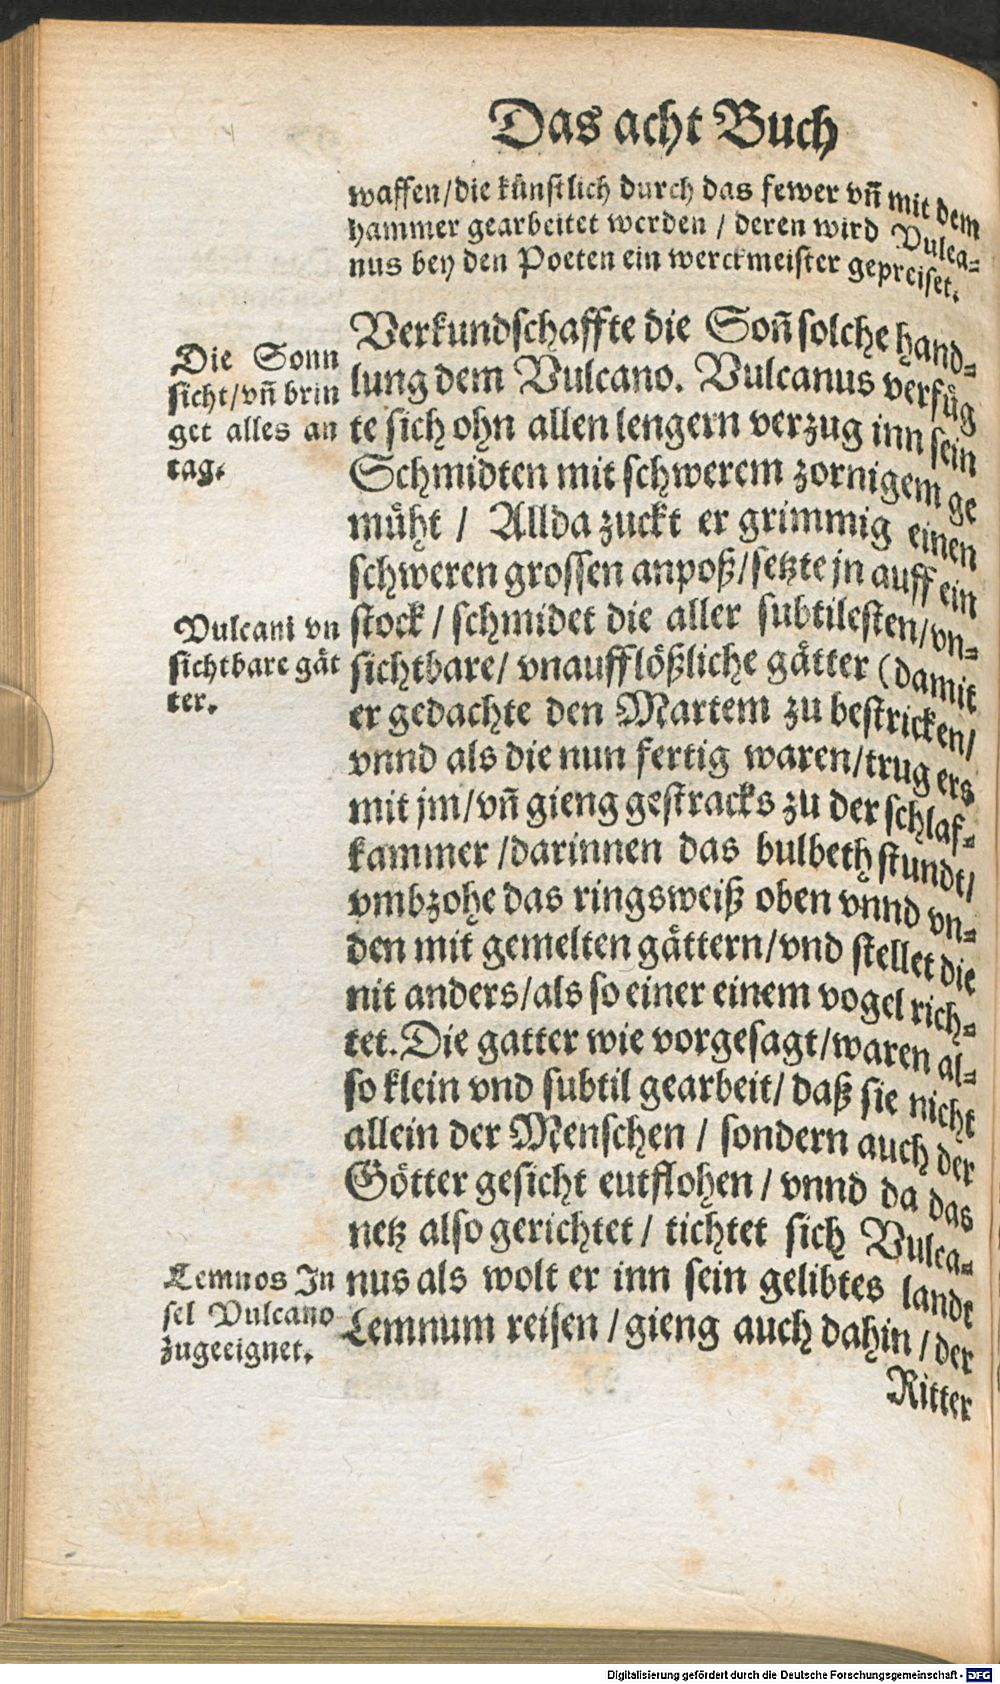 Das acht Buch
waffen/die künstlich durch das fewer vñ mit dem
hammer gearbeitet werden / deren wird Vulca-
nus bey den Poeten ein werckmeister gepreiset.
Verkundschaffte die Soñ solche hand-
lung dem Vulcano. Vulcanus verfüg
te sich ohn allen lengern verzug inn sein
Schmidten mit schwerem zornigem ge
müht / Allda zuckt er grimmig einen
schweren grossen anpoß/setzte jn auff ein
stock / schmidet die aller subtilesten/vn-
sichtbare/ vnaufflößliche gätter (damit
er gedachte den Martem zu bestricken/
vnnd als die nun fertig waren/trug ers
mit jm/vñ gieng gestracks zu der schlaf-
kammer /darinnen das bulbeth stundt/
vmbzohe das ringsweiß oben vnnd vn-
den mit gemelten gättern/vnd stellet die
nit anders/als so einer einem vogel rich-
tet. Die gatter wie vorgesagt/waren al-
so klein vnd subtil gearbeit/ daß sie nicht
allein der Menschen / sondern auch der
Götter gesicht eutflohen / vnnd da das
netz also gerichtet / tichtet sich Vulca-
nus als wolt er inn sein gelibtes landt
Lemnum reisen / gieng auch dahin / der
Ritter
Die Sonn
sicht/vñ brin
get alles an
tag.
Vulcani vn
sichtbare gät
ter.
Lemnos In
sel Vulcano
zugeeignet.
Digitalisierung gefördert durch die Deutsche Forschungsgemeinschaft - DFG